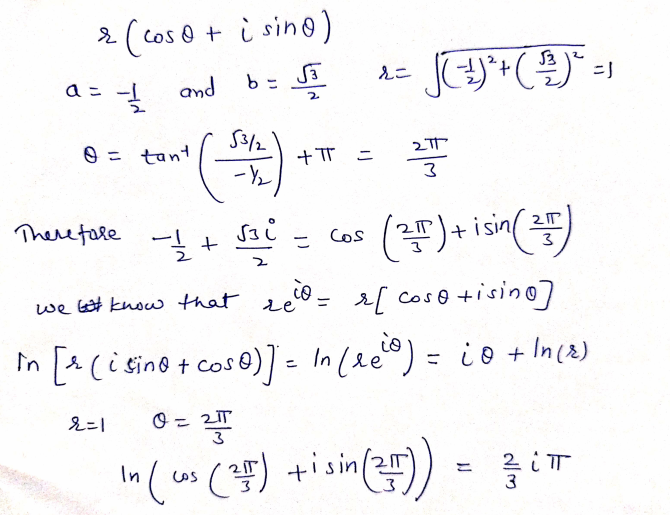 r (cosθ + i sinθ)
a = -1/2 and b = √3/2 r = √((-1/2)² + (√3/2)²) = 1
θ = tan⁻¹ ((√3/2)/(-1/2)) + π = 2π/3
Therefore -1/2 + √3i/2 = cos (2π/3) + i sin(2π/3)
we know that re^{iθ} = r[cosθ + i sinθ]
ln [r(i sinθ + cosθ)] = ln(re^{iθ}) = iθ + ln(r)
r=1 θ = 2π/3
ln (cos (2π/3) + i sin(2π/3)) = 2/3 iπ